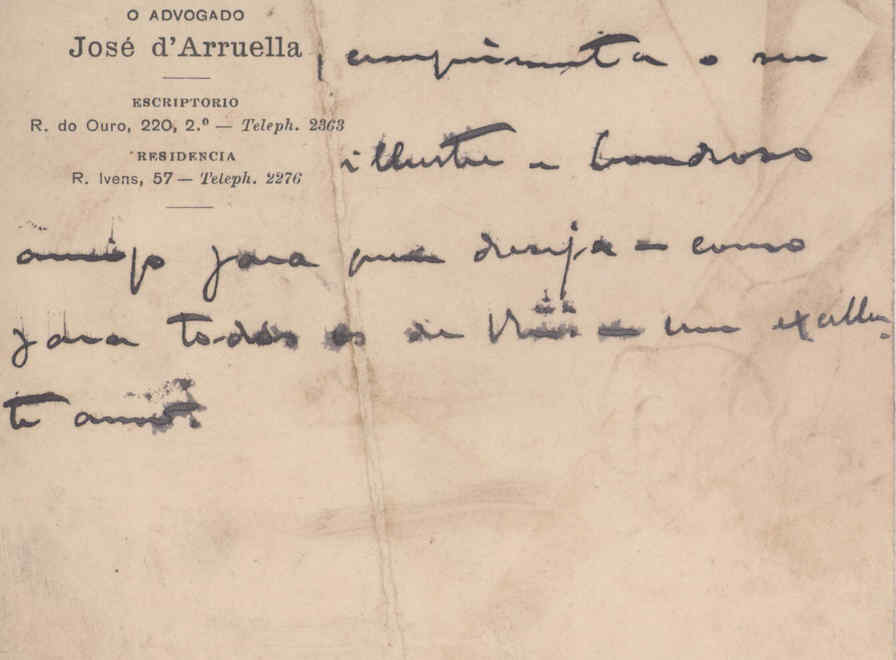 O ADVOGADO
José d'Arruella
ESCRIPTORIO
R. do Ouro, 220, 2.º — Teleph. 2363
RESIDENCIA
R. Ivens, 57 — Teleph. 2276
, cumprimenta o seu
illustre e bondoso
amigo para quem deseja — como
para todos os de — um excellen
te anno.